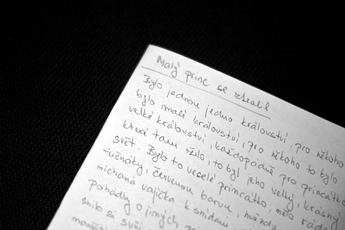 Malý princ se ztratil
Bylo jednou jedno království, pro někoho
bylo malé království, pro někoho to bylo
velké království, každopádně pro princátko
které tam žilo, to byl jeho velký, krásný
svět. Bylo to veselé princátko, mělo rádo
tučňáky, červenou barvu, hvězdy
míchaná vajíčka k snídani
pohádky o jiných
snilo